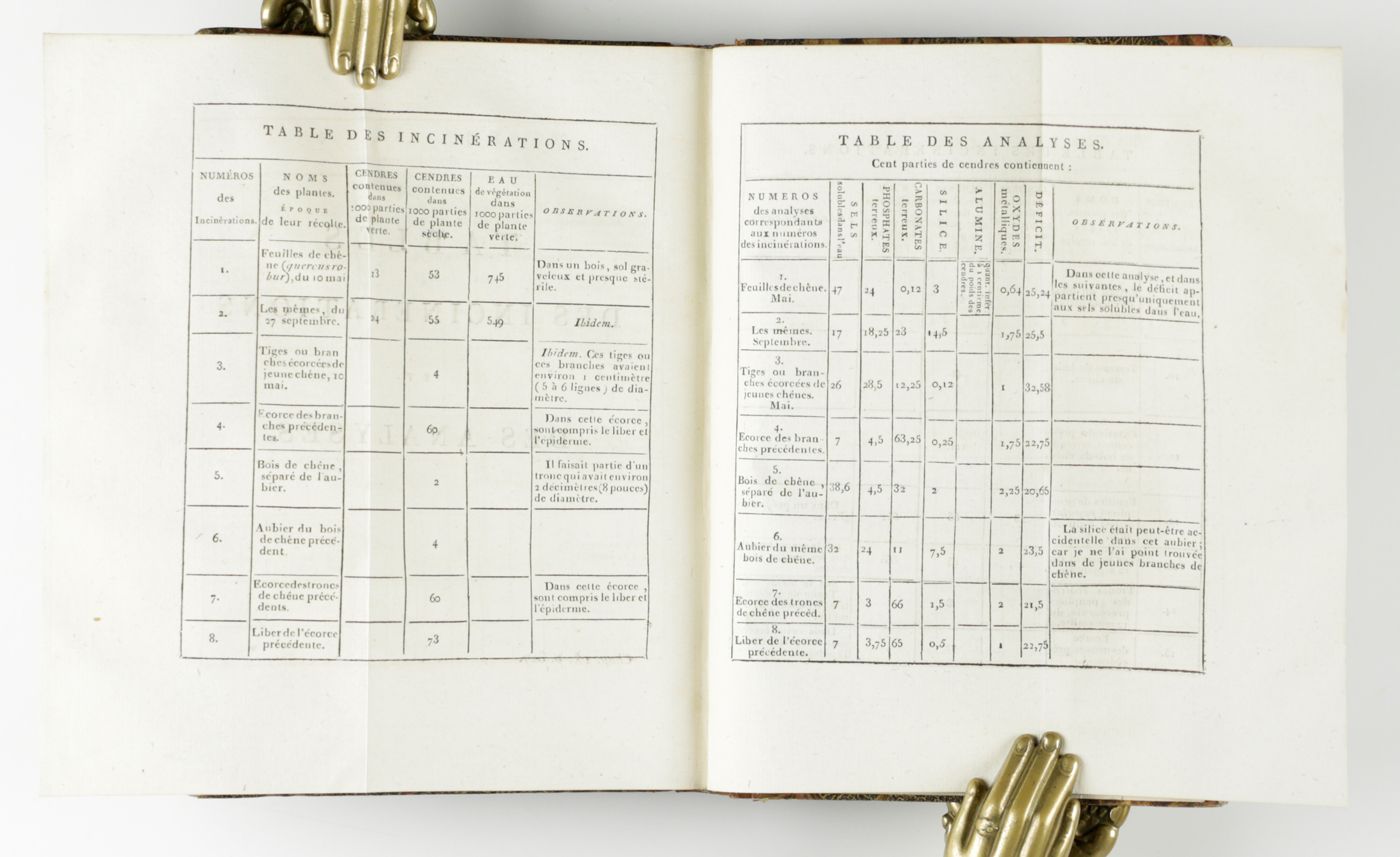 TABLE DES INCINÉRATIONS.
NUMÉROS
des
Incinérations.
NOMS
des plantes.
ÉPOQUE
de leur récolte.
CENDRES
contenues
dans
1000 parties
de plante
verte.
CENDRES
contenues
dans
1000 parties
de plante
sèche.
EAU
de végétation
dans
1000 parties
de plante
verte.
OBSERVATIONS.
1.
Feuilles de chê-
ne (quercus ro-
bur), du 10 mai
13
53
745
Dans un bois, sol gra-
veleux et presque sté-
rile.
2.
Les mêmes, du
27 septembre.
24
55
549
Ibidem.
3.
Tiges ou bran
ches écorcées de
jeune chêne, 10
mai.
4
Ibidem. Ces tiges ou
ces branches avaient
environ 1 centimètre
(5 à 6 lignes) de dia-
mètre.
4.
Ecorce des bran-
ches précéden-
tes.
60
Dans cette écorce,
sont compris le liber et
l'épiderme.
5.
Bois de chêne,
séparé de l'au-
bier.
2
Il faisait partie d'un
tronc qui avait environ
2 décimètres (8 pouces)
de diamètre.
6.
Aubier du bois
de chêne précé-
dent.
4
7.
Ecorce des troncs
de chêne précé-
dents.
60
Dans cette écorce,
sont compris le liber et
l'épiderme.
8.
Liber de l'écorce
précédente.
73
TABLE DES ANALYSES.
Cent parties de cendres contiennent :
NUMEROS
des analyses
correspondants
aux numéros
des incinérations.
SELS
solubles dans l'eau
PHOSPHATES
terreux.
CARBONATES
terreux.
SILICE.
ALUMINE.
OXYDES
métalliques.
DÉFICIT.
OBSERVATIONS.
1.
Feuilles de chêne.
Mai.
47
24
0,12
3
quant. infér
à 1 centième
du poids des
cendres.
0,64
25,24
Dans cette analyse, et dans
les suivantes, le déficit ap-
partient presqu'uniquement
aux sels solubles dans l'eau.
2.
Les mêmes.
Septembre.
17
18,25
23
14,5
1,75
25,5
3.
Tiges ou bran-
ches écorcées de
jeunes chênes.
Mai.
26
28,5
12,25
0,12
1
32,58
4.
Ecorce des bran-
ches précédentes.
7
4,5
63,25
0,25
1,75
22,75
5.
Bois de chêne,
séparé de l'au-
bier.
38,6
4,5
32
2
2,25
20,65
6.
Aubier du même
bois de chêne.
32
24
11
7,5
2
23,5
La silice était peut-être ac-
cidentelle dans cet aubier;
car je ne l'ai point trouvée
dans de jeunes branches de
chêne.
7.
Ecorce des troncs
de chêne précéd.
7
3
66
1,5
2
21,5
8.
Liber de l'écorce
précédente.
7
3,75
65
0,5
1
22,75